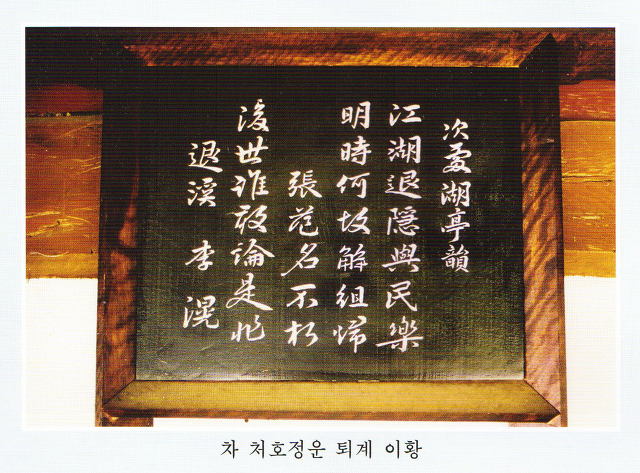 次處湖亭韻
江湖退隱與民樂
明時何故解組歸
張范名不朽
後世誰敢論是非
退溪 李 滉
차 처호정운 퇴계 이황